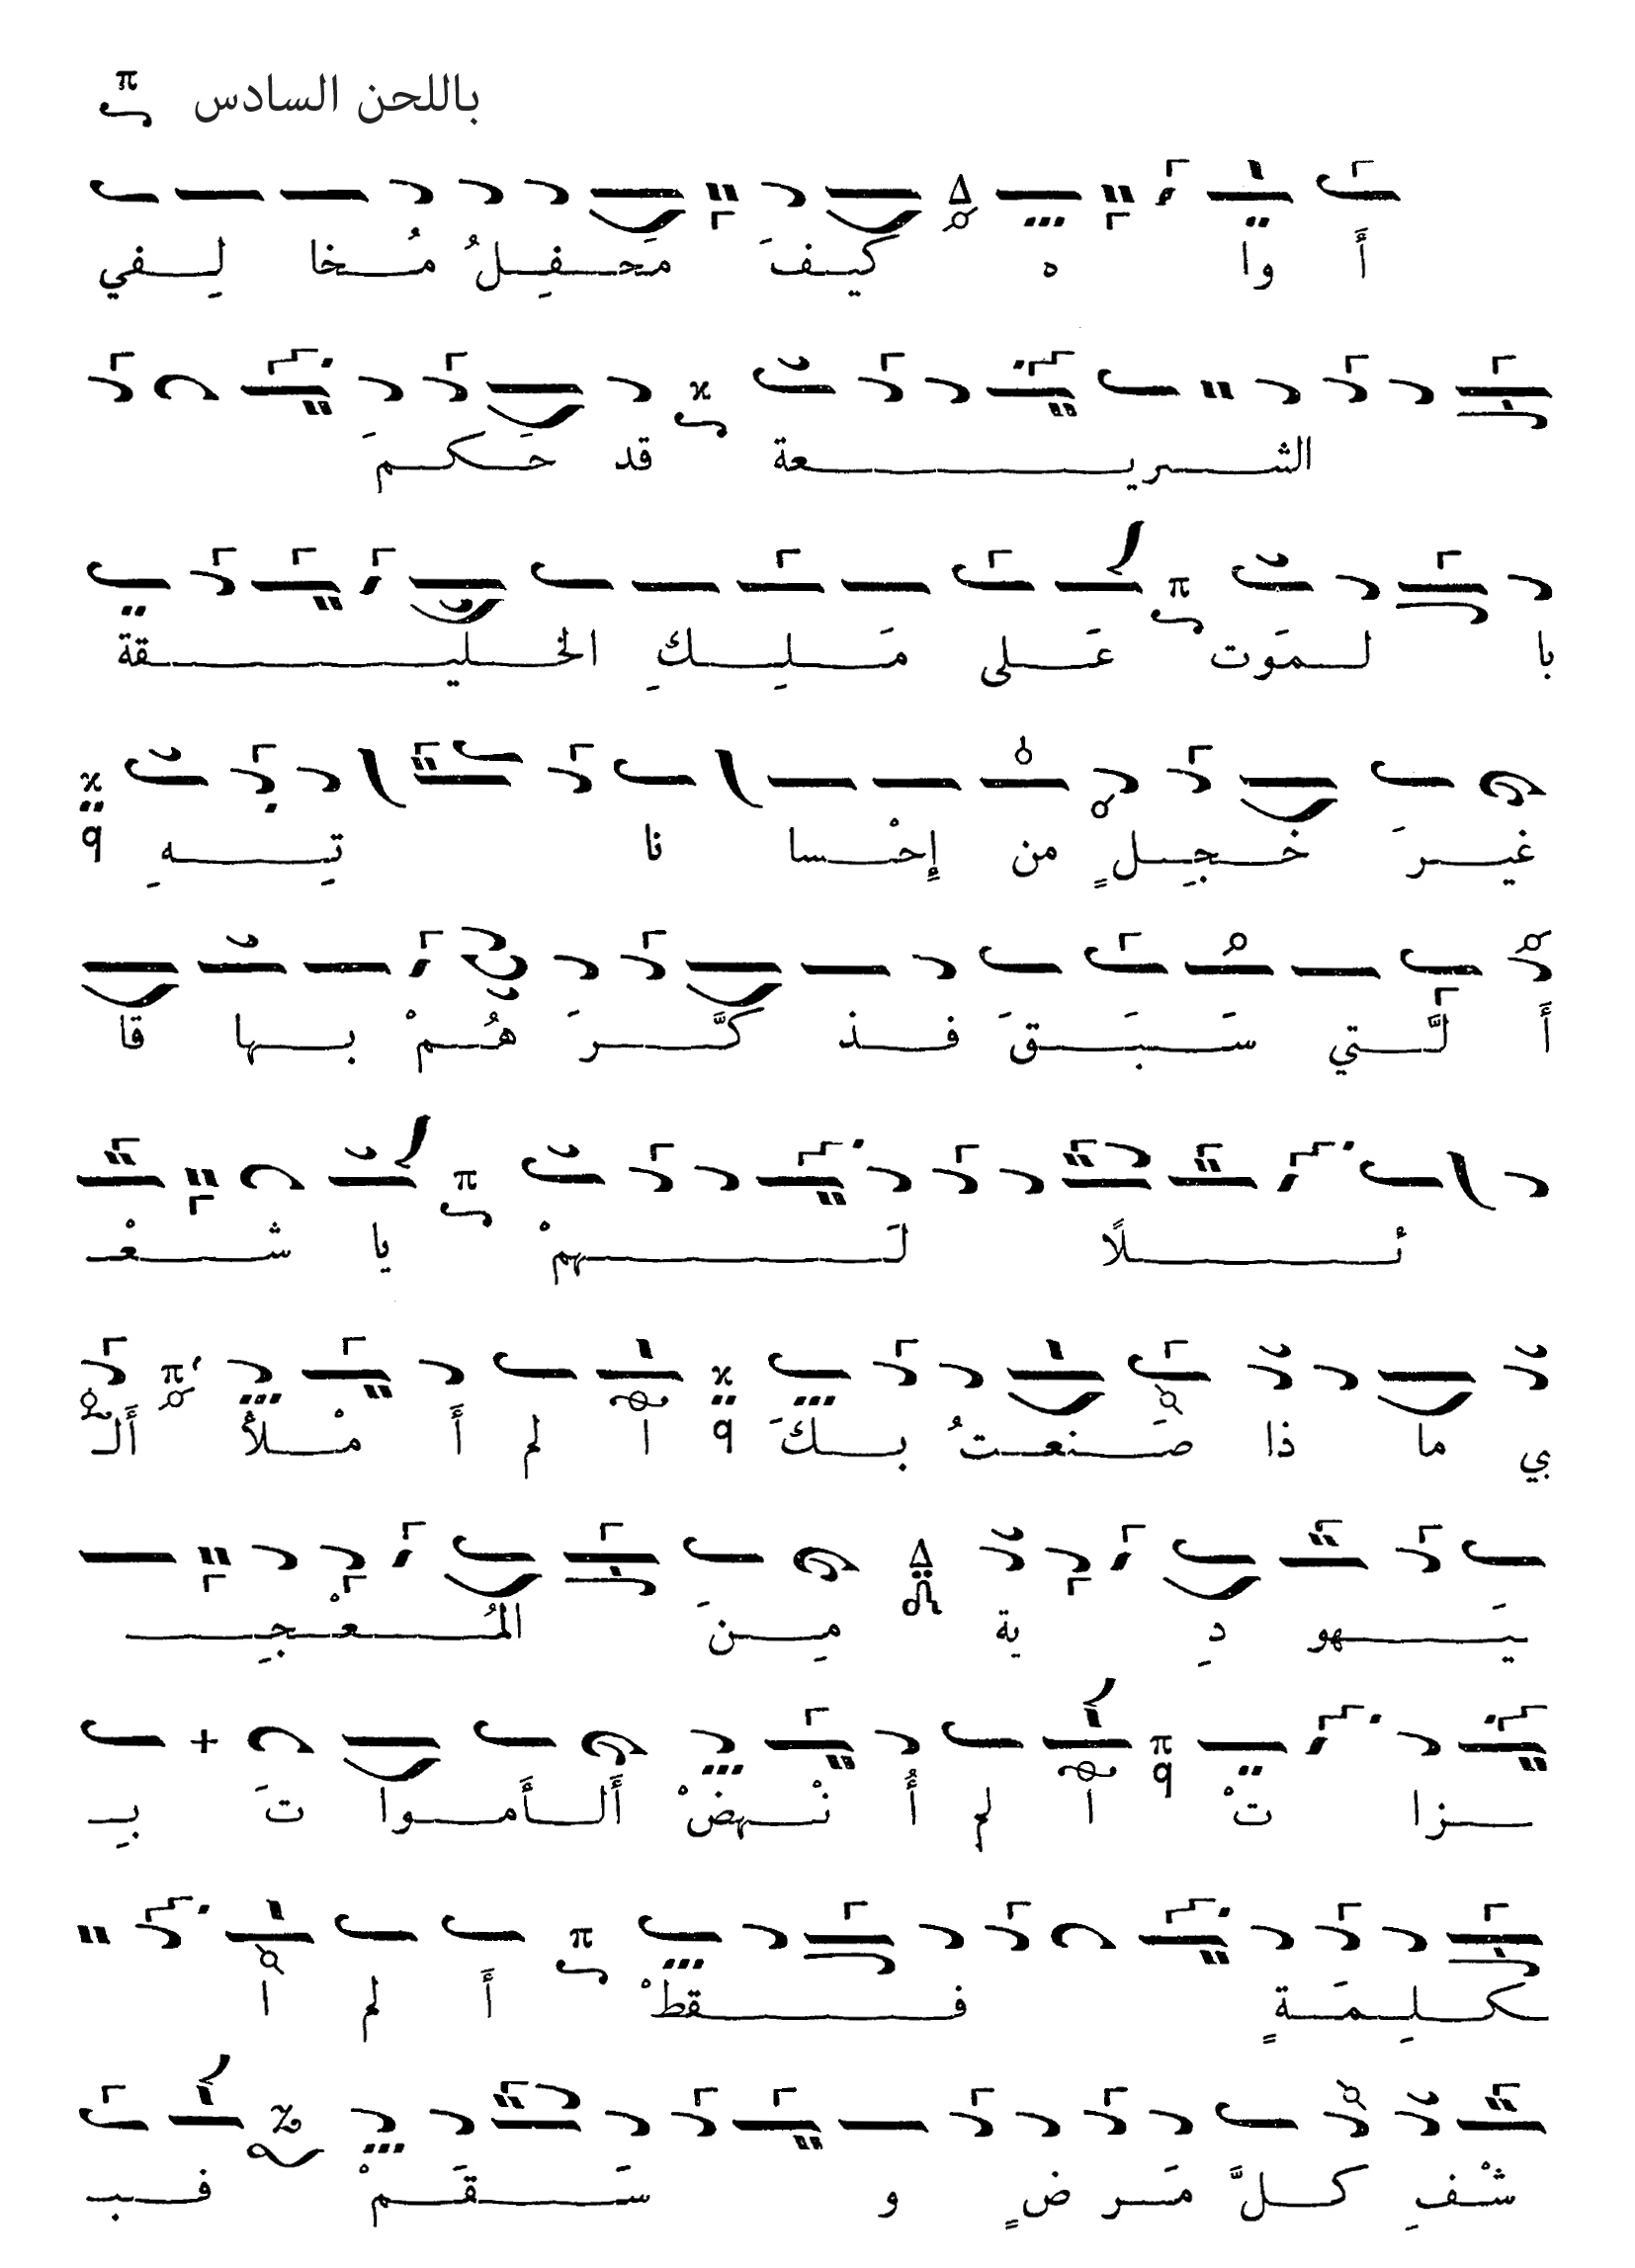 باللحن السادس
أَ وا ه كيفَ مَحفِلُ مُخا لِفي
الشريعة قد حَكمَ
با لمَوت عَلى مَلِيكِ الخليقة
غيرَ خَجِلٍ من إِحْسا نا تِهِ
أَ لَّتي سَبَقَ فذ كَّرَ هُمْ بها قا
ئلًا لَهمْ يا شعْ
بي ما ذا صَنعتُ بكَ ا لم أَ مْلأْ أَلـ
يَهو دِ ية مِنَ المُعْجِـ
ـزا تْ ا لم أُ نْهضْ أَلأَموا تَ بِـ
ـكلِمَةٍ فقطْ أَ لم ا
شْفِ كلَّ مَر ضٍ و سَقَمْ فبـ